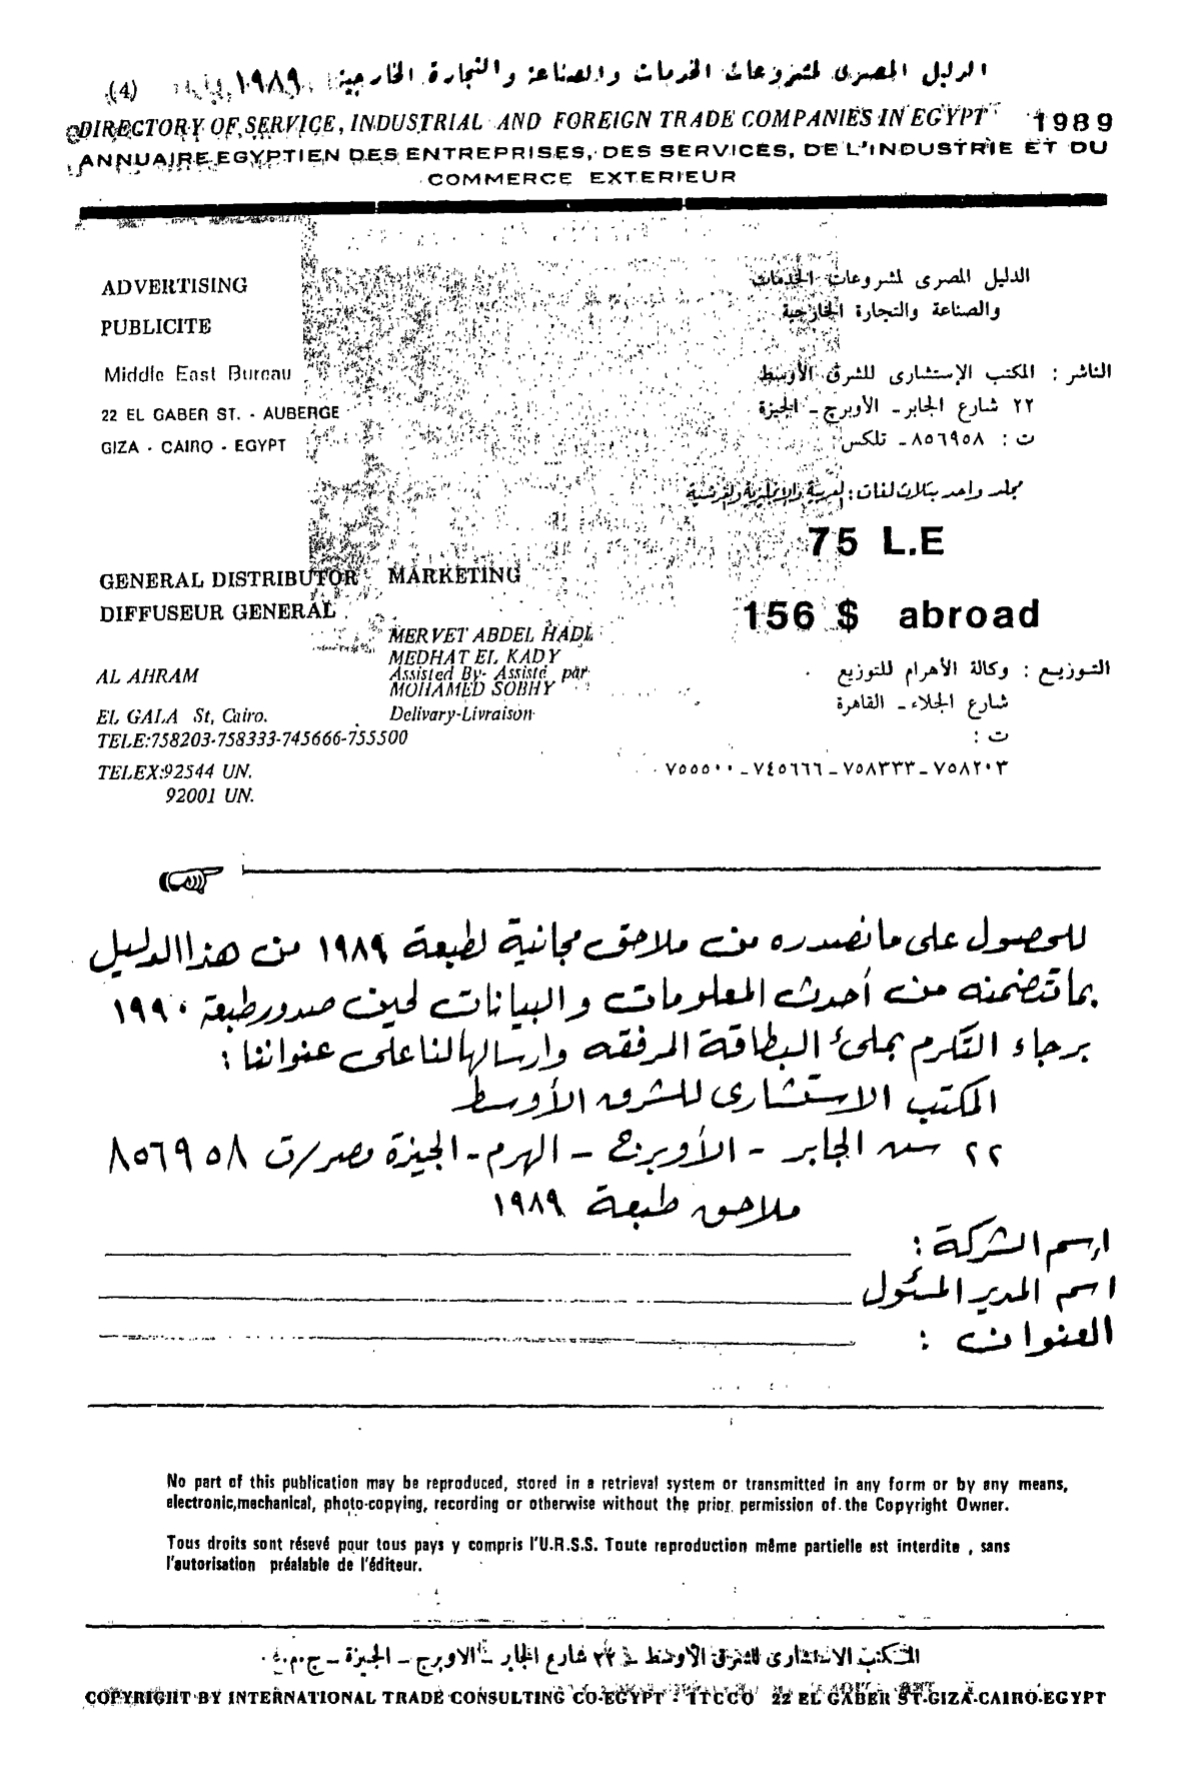 الدليل المصرى لمشروعات الخدمات والصناعة والتجارة الخارجية ١٩٨٩
(4)
DIRECTORY OF SERVICE, INDUSTRIAL AND FOREIGN TRADE COMPANIES IN EGYPT 1989
ANNUAIRE EGYPTIEN DES ENTREPRISES, DES SERVICES, DE L'INDUSTRIE ET DU
COMMERCE EXTERIEUR
ADVERTISING
PUBLICITE
Middle East Bureau
22 EL GABER ST. - AUBERGE
GIZA - CAIRO - EGYPT
الدليل المصرى لمشروعات الخدمات
والصناعة والتجارة الخارجية
الناشر : المكتب الإستشارى للشرق الأوسط
٢٢ شارع الجابر - الأوبرج - الجيزة
ت : ٨٥٦٩٥٨ - تلكس :
مجلد واحد بثلاث لغات : العربية والإنجليزية والفرنسية
75 L.E
156 $ abroad
GENERAL DISTRIBUTOR
DIFFUSEUR GENERAL
AL AHRAM
EL GALA St, Cairo.
TELE:758203-758333-745666-755500
TELEX:92544 UN.
92001 UN.
MARKETING
MERVET ABDEL HADI
MEDHAT EL KADY
Assisted By- Assisté par
MOHAMED SOBHY
Delivary-Livraison
التوزيع : وكالة الأهرام للتوزيع
شارع الجلاء - القاهرة
ت :
٧٥٨٢٠٣ - ٧٥٨٣٣٣ - ٧٤٥٦٦٦ - ٧٥٥٥٠٠
للحصول على مانصدره من ملاحق مجانية لطبعة ١٩٨٩ من هذا الدليل
بما تتضمنه من أحدث المعلومات والبيانات لحين صدور طبعة ١٩٩٠
برجاء التكرم بملئ البطاقة المرفقه وارسالها لنا على عنواننا :
المكتب الاستشارى للشرق الأوسط
٢٢ ش الجابر - الأوبرج - الهرم - الجيزة مصر/ت ٨٥٦٩٥٨
ملاحق طبعة ١٩٨٩
اسم الشركة :
اسم المدير المسئول
العنوان :
No part of this publication may be reproduced, stored in a retrieval system or transmitted in any form or by any means,
electronic,mechanical, photo-copying, recording or otherwise without the prior permission of the Copyright Owner.
Tous droits sont résevé pour tous pays y compris l'U.R.S.S. Toute reproduction même partielle est interdite , sans
l'autorisation préalable de l'éditeur.
المكتب الاستشارى للشرق الأوسط ٢٢ شارع الجابر - الاوبرج - الجيزة - ج.م.ع.
COPYRIGHT BY INTERNATIONAL TRADE CONSULTING CO-EGYPT - ITCCO 22 EL GABER ST-GIZA-CAIRO-EGYPT